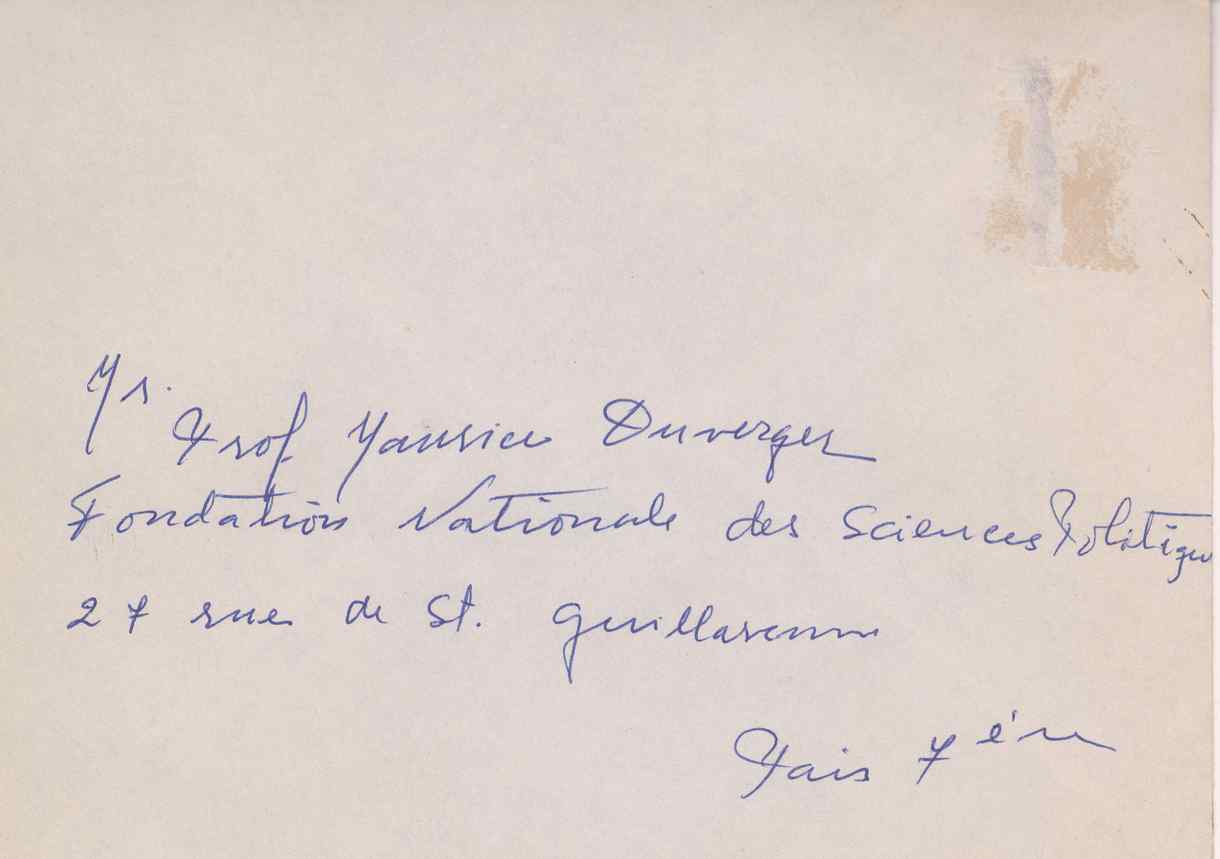 Mr.
Prof. Maurice Duverger
Fondation Nationale des Sciences Politique
27 rue de St. Guillaremme
Pais 7ème